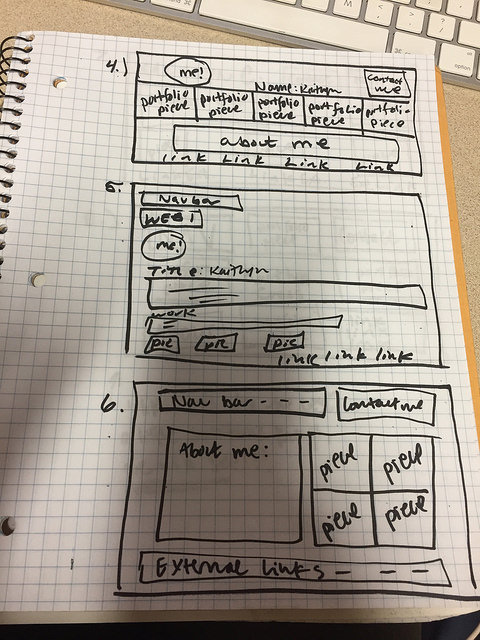 4.)
me!
Name: Kaitlyn
Contact me
portfolio piece
portfolio piece
portfolio piece
portfolio piece
portfolio piece
about me
link Link Link Link
5.
Nav bar
me!
Title: Kaitlyn
work
pic pic pic
link link link
6.
Nav bar - - -
Contact me
About me:
piece
piece
piece
piece
External Links - - -
option